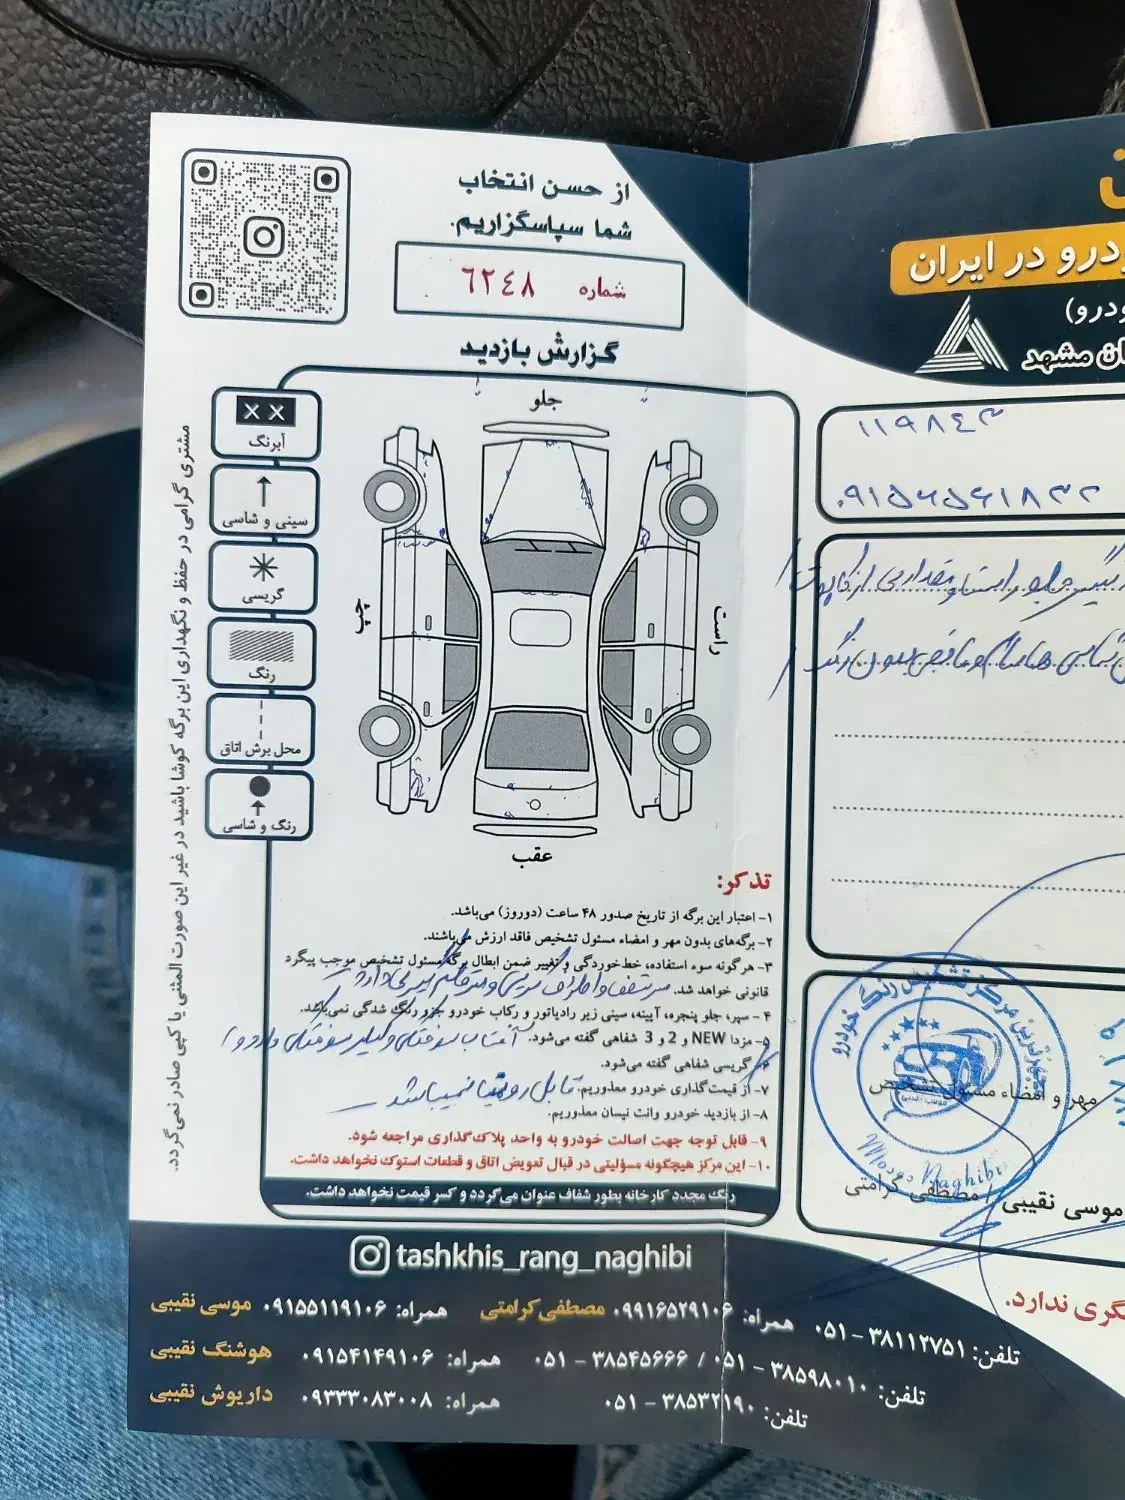 از حسن انتخاب
شما سپاسگزاریم.
شماره ٦٢٤٨
گزارش بازدید
جلو
چپ
راست
عقب
X X
آبرنگ
سینی و شاسی
گریسی
رنگ
محل برش اتاق
رنگ و شاسی
مشتری گرامی در حفظ و نگهداری این برگه کوشا باشید در غیر این صورت المثنی یا کپی صادر نمی‌گردد.
تذکر:
۱- اعتبار این برگه از تاریخ صدور ۴۸ ساعت (دوروز) می‌باشد.
۲- برگه‌های بدون مهر و امضاء مسئول تشخیص فاقد ارزش می‌باشند.
۳- هرگونه سوء استفاده، خط‌خوردگی و تغییر ضمن ابطال برگه مسئول تشخیص موجب پیگرد
قانونی خواهد شد.
۴- سپر، جلو پنجره، آیینه، سینی زیر رادیاتور و رکاب خودرو جزو رنگ شدگی نمی‌باشد.
۵- مزدا NEW و 2 و 3 شفاهی گفته می‌شود.
۶- گریسی شفاهی گفته می‌شود.
۷- از قیمت‌گذاری خودرو معذوریم.
۸- از بازدید خودرو وانت نیسان معذوریم.
۹- قابل توجه جهت اصالت خودرو به واحد پلاک‌گذاری مراجعه شود.
۱۰- این مرکز هیچگونه مسؤلیتی در قبال تعویض اتاق و قطعات استوک نخواهد داشت.
رنگ مجدد کارخانه بطور شفاف عنوان می‌گردد و کسر قیمت نخواهد داشت.
درو در ایران
ودرو)
ان مشهد
۱۱۹۸٤۳
۰۹۱۵۶۵۶۱۸۳۲
مهر و امضاء مسئول تشخیص
Moosa Naghibi
موسی نقیبی / مصطفی کرامتی
گری ندارد.
tashkhis_rang_naghibi
موسی نقیبی همراه: ۰۹۱۵۵۱۱۹۱۰۶
مصطفی کرامتی همراه: ۰۹۹۱۶۵۲۹۱۰۶
تلفن: ۳۸۱۱۲۷۵۱ - ۰۵۱
هوشنگ نقیبی همراه: ۰۹۱۵۴۱۴۹۱۰۶
تلفن: ۳۸۵۹۸۰۱۰ - ۰۵۱ / ۳۸۵۴۵۶۶۶ - ۰۵۱
داریوش نقیبی همراه: ۰۹۳۳۳۰۸۳۰۰۸
تلفن: ۳۸۵۳۲۱۹۰ - ۰۵۱